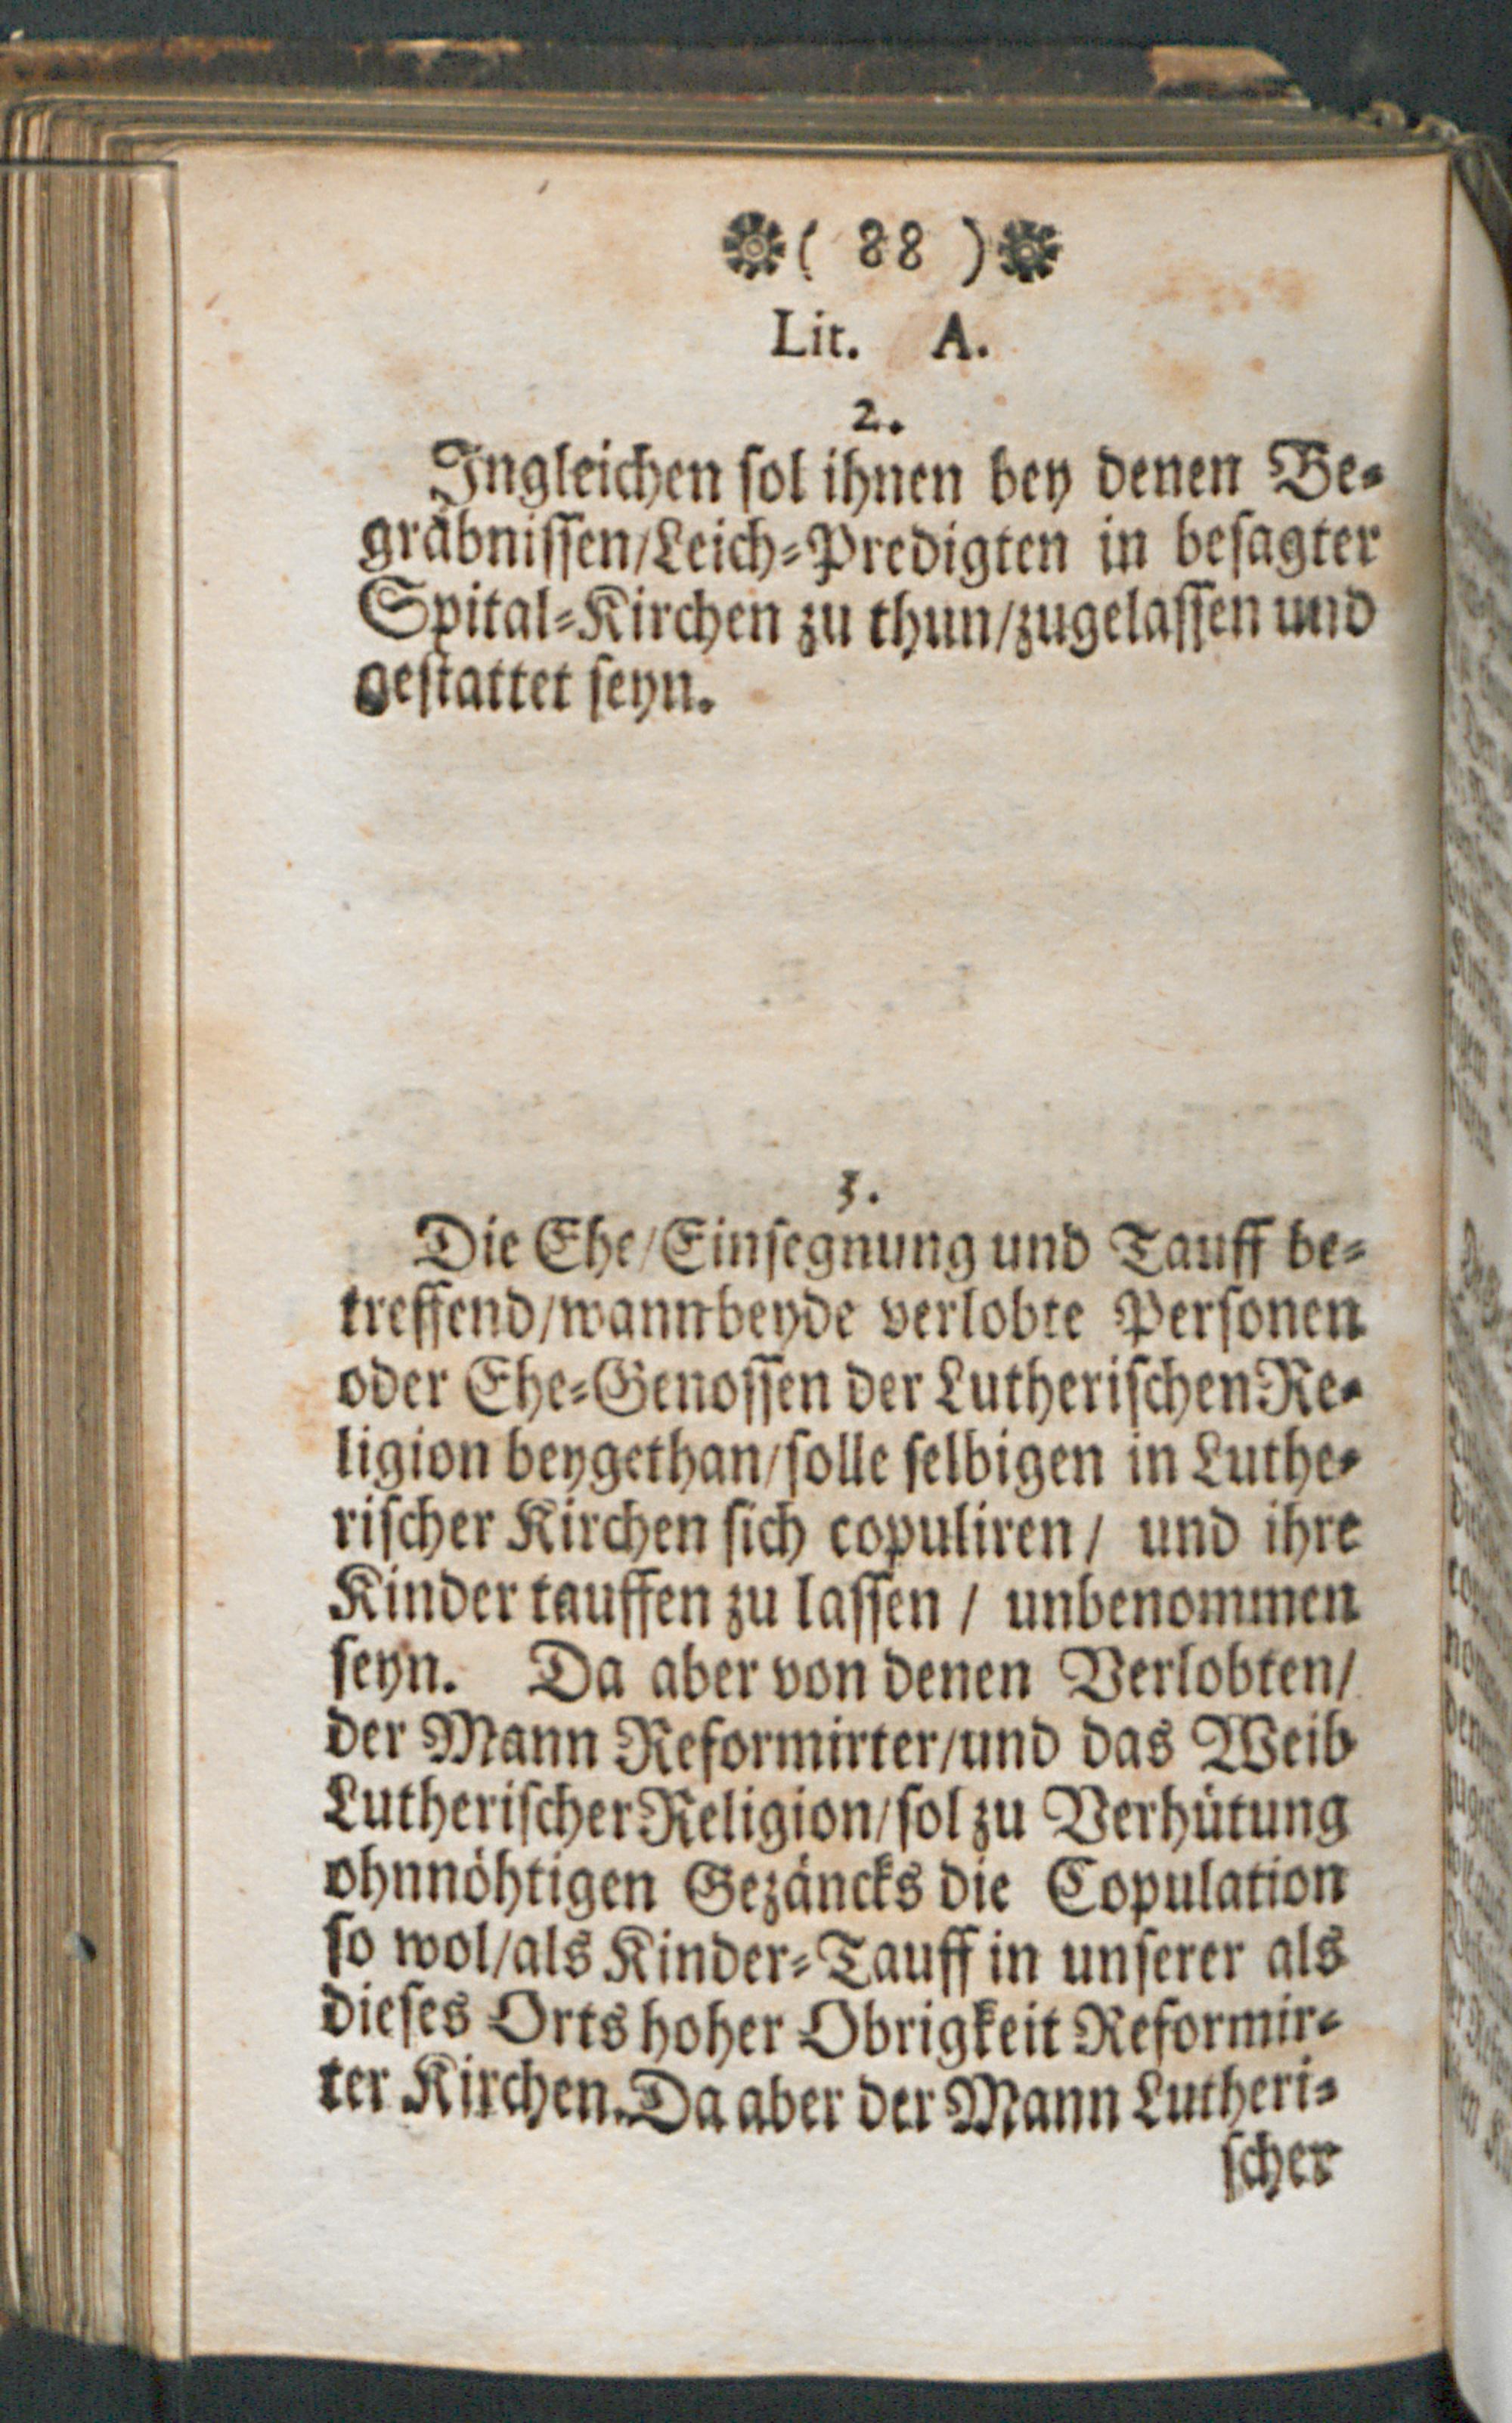 ( 88 )
Lit. A.
2.
Ingleichen sol ihnen bey denen Be-
gräbnissen/Leich-Predigten in besagter
Spital-Kirchen zu thun/zugelassen und
gestattet seyn.
3.
Die Ehe/Einsegnung und Tauff be-
treffend/wann beyde verlobte Personen
oder Ehe-Genossen der Lutherischen Re-
ligion beygethan/solle selbigen in Luthe-
rischer Kirchen sich copuliren/ und ihre
Kinder tauffen zu lassen / unbenommen
seyn. Da aber von denen Verlobten/
der Mann Reformirter/und das Weib
Lutherischer Religion/sol zu Verhütung
ohnnöhtigen Gezäncks die Copulation
so wol/als Kinder-Tauff in unserer als
dieses Orts hoher Obrigkeit Reformir-
ter Kirchen. Da aber der Mann Lutheri-
scher